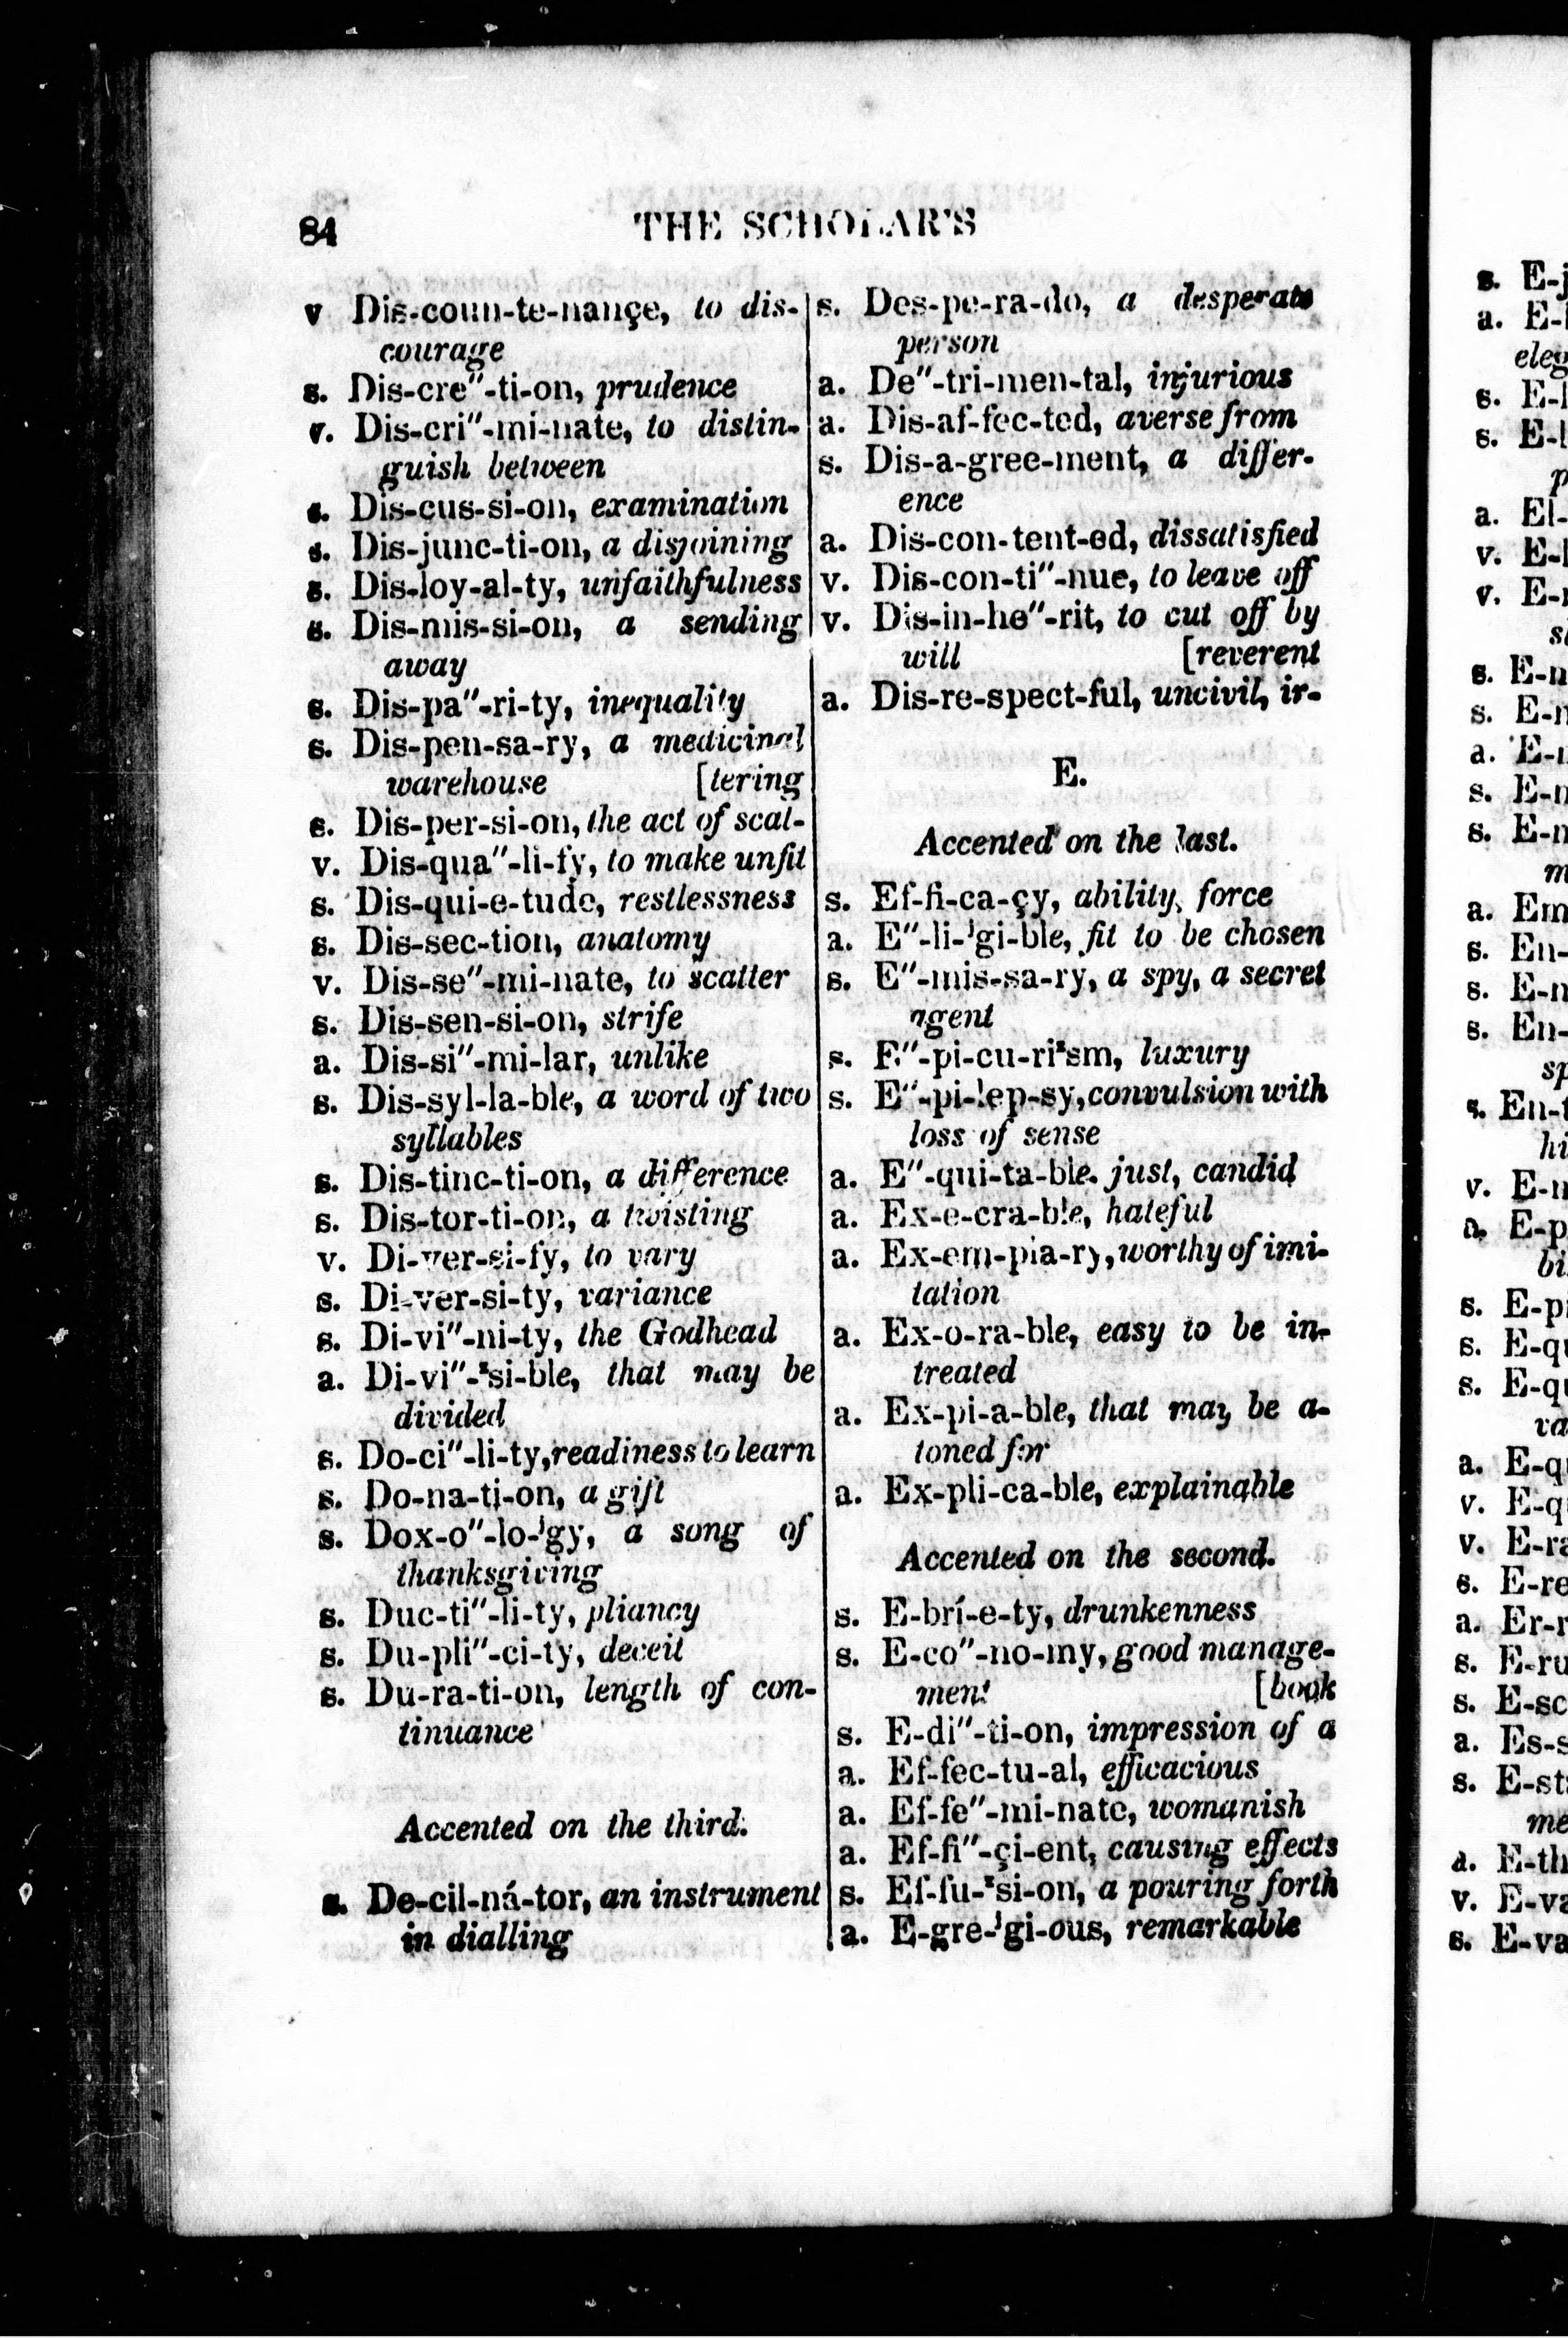 84
THE SCHOLAR'S
v Dis-coun-te-nançe, to dis-
courage
s. Dis-cre"-ti-on, prudence
v. Dis-cri"-mi-nate, to distin-
guish between
s. Dis-cus-si-on, examination
s. Dis-junc-ti-on, a disjoining
s. Dis-loy-al-ty, unfaithfulness
s. Dis-mis-si-on, a sending
away
s. Dis-pa"-ri-ty, inequality
s. Dis-pen-sa-ry, a medicinal
warehouse [tering
s. Dis-per-si-on, the act of scat-
v. Dis-qua"-li-fy, to make unfit
s. Dis-qui-e-tude, restlessness
s. Dis-sec-tion, anatomy
v. Dis-se"-mi-nate, to scatter
s. Dis-sen-si-on, strife
a. Dis-si"-mi-lar, unlike
s. Dis-syl-la-ble, a word of two
syllables
s. Dis-tinc-ti-on, a difference
s. Dis-tor-ti-on, a twisting
v. Di-ver-si-fy, to vary
s. Di-ver-si-ty, variance
s. Di-vi"-ni-ty, the Godhead
a. Di-vi"-ᶻsi-ble, that may be
divided
s. Do-ci"-li-ty, readiness to learn
s. Do-na-ti-on, a gift
s. Dox-o"-lo-ʲgy, a song of
thanksgiving
s. Duc-ti"-li-ty, pliancy
s. Du-pli"-ci-ty, deceit
s. Du-ra-ti-on, length of con-
tinuance
Accented on the third.
s. De-cil-ná-tor, an instrument
in dialling
s. Des-pe-ra-do, a desperate
person
a. De"-tri-men-tal, injurious
a. Dis-af-fec-ted, averse from
s. Dis-a-gree-ment, a differ-
ence
a. Dis-con-tent-ed, dissatisfied
v. Dis-con-ti"-nue, to leave off
v. Dis-in-he"-rit, to cut off by
will [reverent
a. Dis-re-spect-ful, uncivil, ir-
E.
Accented on the last.
s. Ef-fi-ca-çy, ability, force
a. E"-li-ʲgi-ble, fit to be chosen
s. E"-mis-sa-ry, a spy, a secret
agent
s. E"-pi-cu-riᶻsm, luxury
s. E"-pi-lep-sy, convulsion with
loss of sense
a. E"-qui-ta-ble, just, candid
a. Ex-e-cra-ble, hateful
a. Ex-em-pla-ry, worthy of imi-
tation
a. Ex-o-ra-ble, easy to be in-
treated
a. Ex-pi-a-ble, that may be a-
toned for
a. Ex-pli-ca-ble, explainable
Accented on the second.
s. E-brí-e-ty, drunkenness
s. E-co"-no-my, good manage-
ment [book
s. E-di"-ti-on, impression of a
a. Ef-fec-tu-al, efficacious
a. Ef-fe"-mi-nate, womanish
a. Ef-fi"-çi-ent, causing effects
s. Ef-fu-ᶻsi-on, a pouring forth
a. E-gre-ʲgi-ous, remarkable